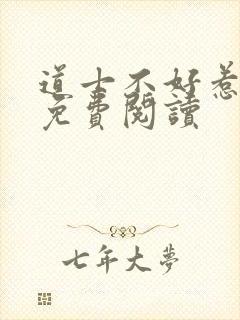 道士不好惹
免費閱讀
七年大夢